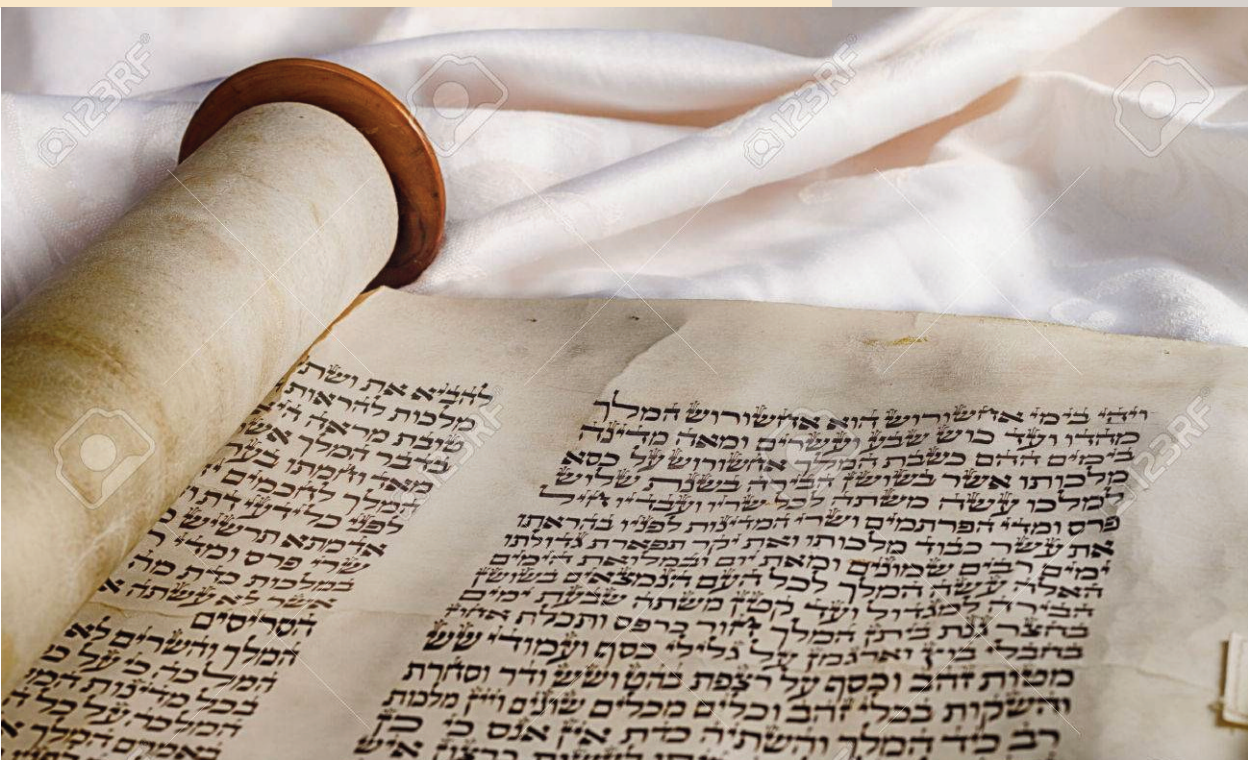 ויהי בימי אחשורוש הוא אחשורוש המלך
מהדו ועד כוש שבע ועשרים ומאה מדינה
בימים ההם כשבת המלך אחשורוש על כסא
מלכותו אשר בשושן הבירה בשנת שלוש
למלכו עשה משתה לכל שריו ועבדיו חיל
פרס ומדי הפרתמים ושרי המדינות לפניו בהראתו
את עשר כבוד מלכותו ואת יקר תפארת גדולתו
ימים רבים שמונים ומאת יום ובמלואת הימים
האלה עשה המלך לכל העם הנמצאים בשושן
הבירה למגדול ועד קטן משתה שבעת ימים
בחצר גנת ביתן המלך חור כרפס ותכלת אחוז
בחבלי בוץ וארגמן על גלילי כסף ועמודי שש
מטות זהב וכסף על רצפת בהט ושש ודר וסחרת
והשקות בכלי זהב וכלים מכלים שונים ויין מלכות
רב כיד המלך והשתיה כדת אין אנס כי כן
איש
להביא את
מלכות להראות
טובת מראה היא
בדבר המלך אשר
מאד וחמתו בערה
המלך לחכמים
לפני כל ידעי דת
אדמתא תרשיש
שרי פרס ומדי
במלכות כדת מה
אשר לא עשתה
הסריסים
המלך והשרים לא
המלכה כי על
בכל מדינות
המלכה על כל
באמרם המלך
123RF
123RF
123RF
123RF